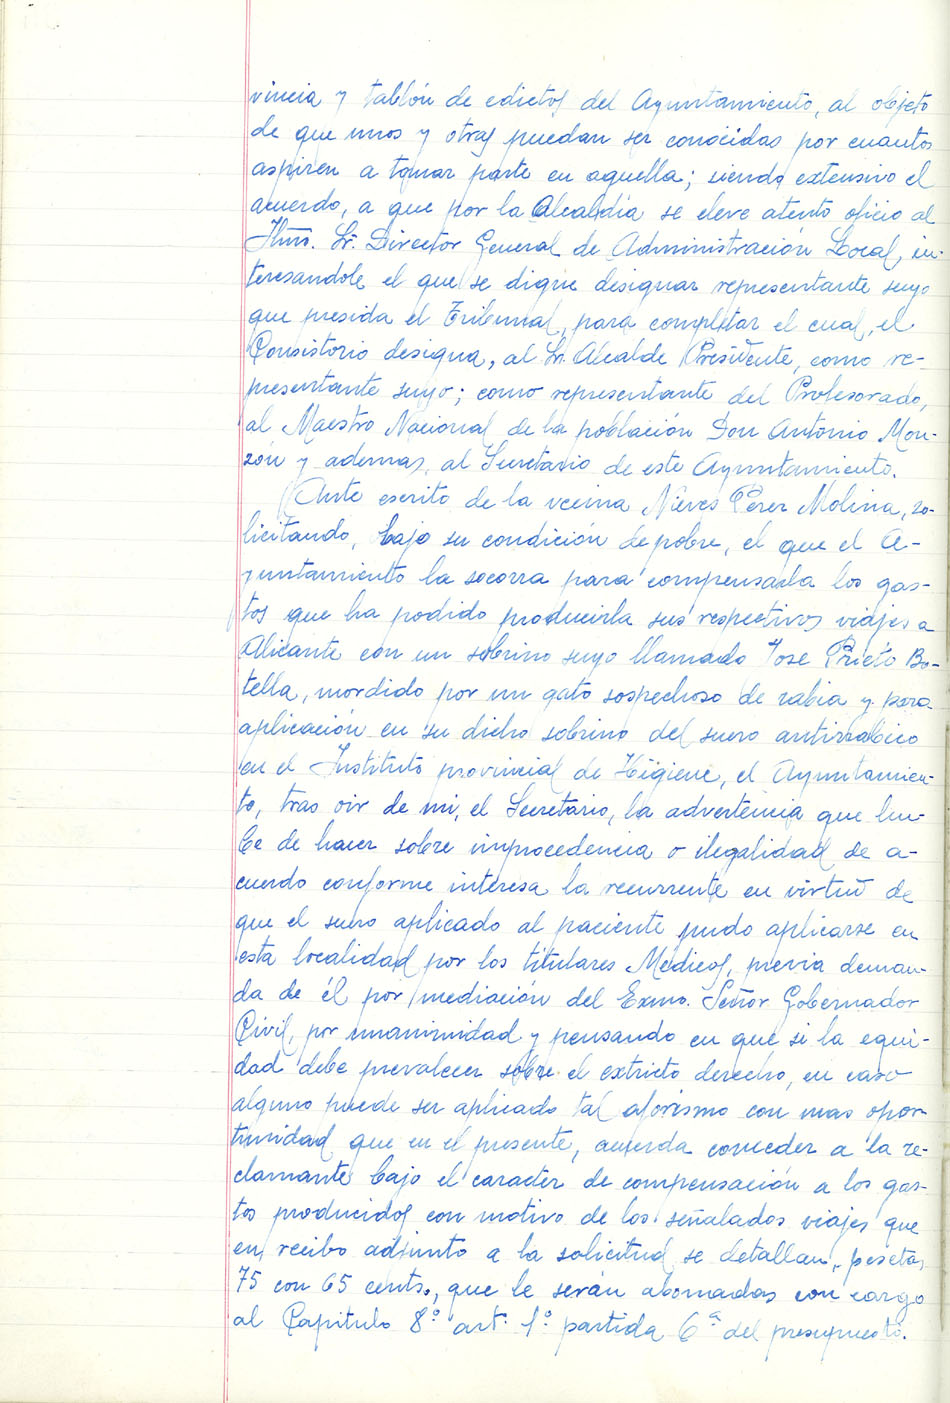 vincia y tablón de edictos del Ayuntamiento, al objeto
de que unos y otros puedan ser conocidas por cuantos
aspiren a tomar parte en aquella; siendo extensivo el
acuerdo, a que por la Alcaldia se eleve atento oficio al
Iltmo. Sr. Director General de Administración Local, in-
teresandole el que se digne designar representante suyo
que presida el Tribunal, para completar el cual, el
Consistorio designa, al Sr. Alcalde Presidente, como re-
presentante suyo; como representante del Profesorado,
al Maestro Nacional de la población Don Antonio Mon-
zón y ademas, al Secretario de este Ayuntamiento.
Ante escrito de la vecina Nieves Perez Molina, so-
licitando, bajo su condición de pobre, el que el A-
yuntamiento la socorra para compensarla los gas-
tos que ha podido producirla sus respectivos viajes a
Alicante con un sobrino suyo llamado José Prieto Bo-
tella, mordido por un gato sospechoso de rabia y para
aplicación en su dicho sobrino del suero antirrabico
en el Instituto provincial de Higiene, el Ayuntamien-
to, tras oir de mi, el Secretario, la advertencia que hu-
be de hacer sobre improcedencia o ilegalidad de a-
cuerdo conforme interesa la recurrente en virtud de
que el suero aplicado al paciente pudo aplicarse en
esta localidad por los titulares Médicos, previa deman-
da de él por mediación del Exmo. Señor Gobernador
Civil, por unanimidad y pensando en que si la equi-
dad debe prevalecer sobre el extricto derecho, en caso
alguno puede ser aplicado tal aforismo con mas opor-
tunidad que en el presente, acuerda conceder a la re-
clamante bajo el caracter de compensación a los gas-
tos producidos con motivo de los señalados viajes que
en recibo adjunto a la solicitud se detallan, pesetas
75 con 65 cents., que le serán abonadas con cargo
al Capitulo 8º art. 1º partida 6ª del presupuesto.